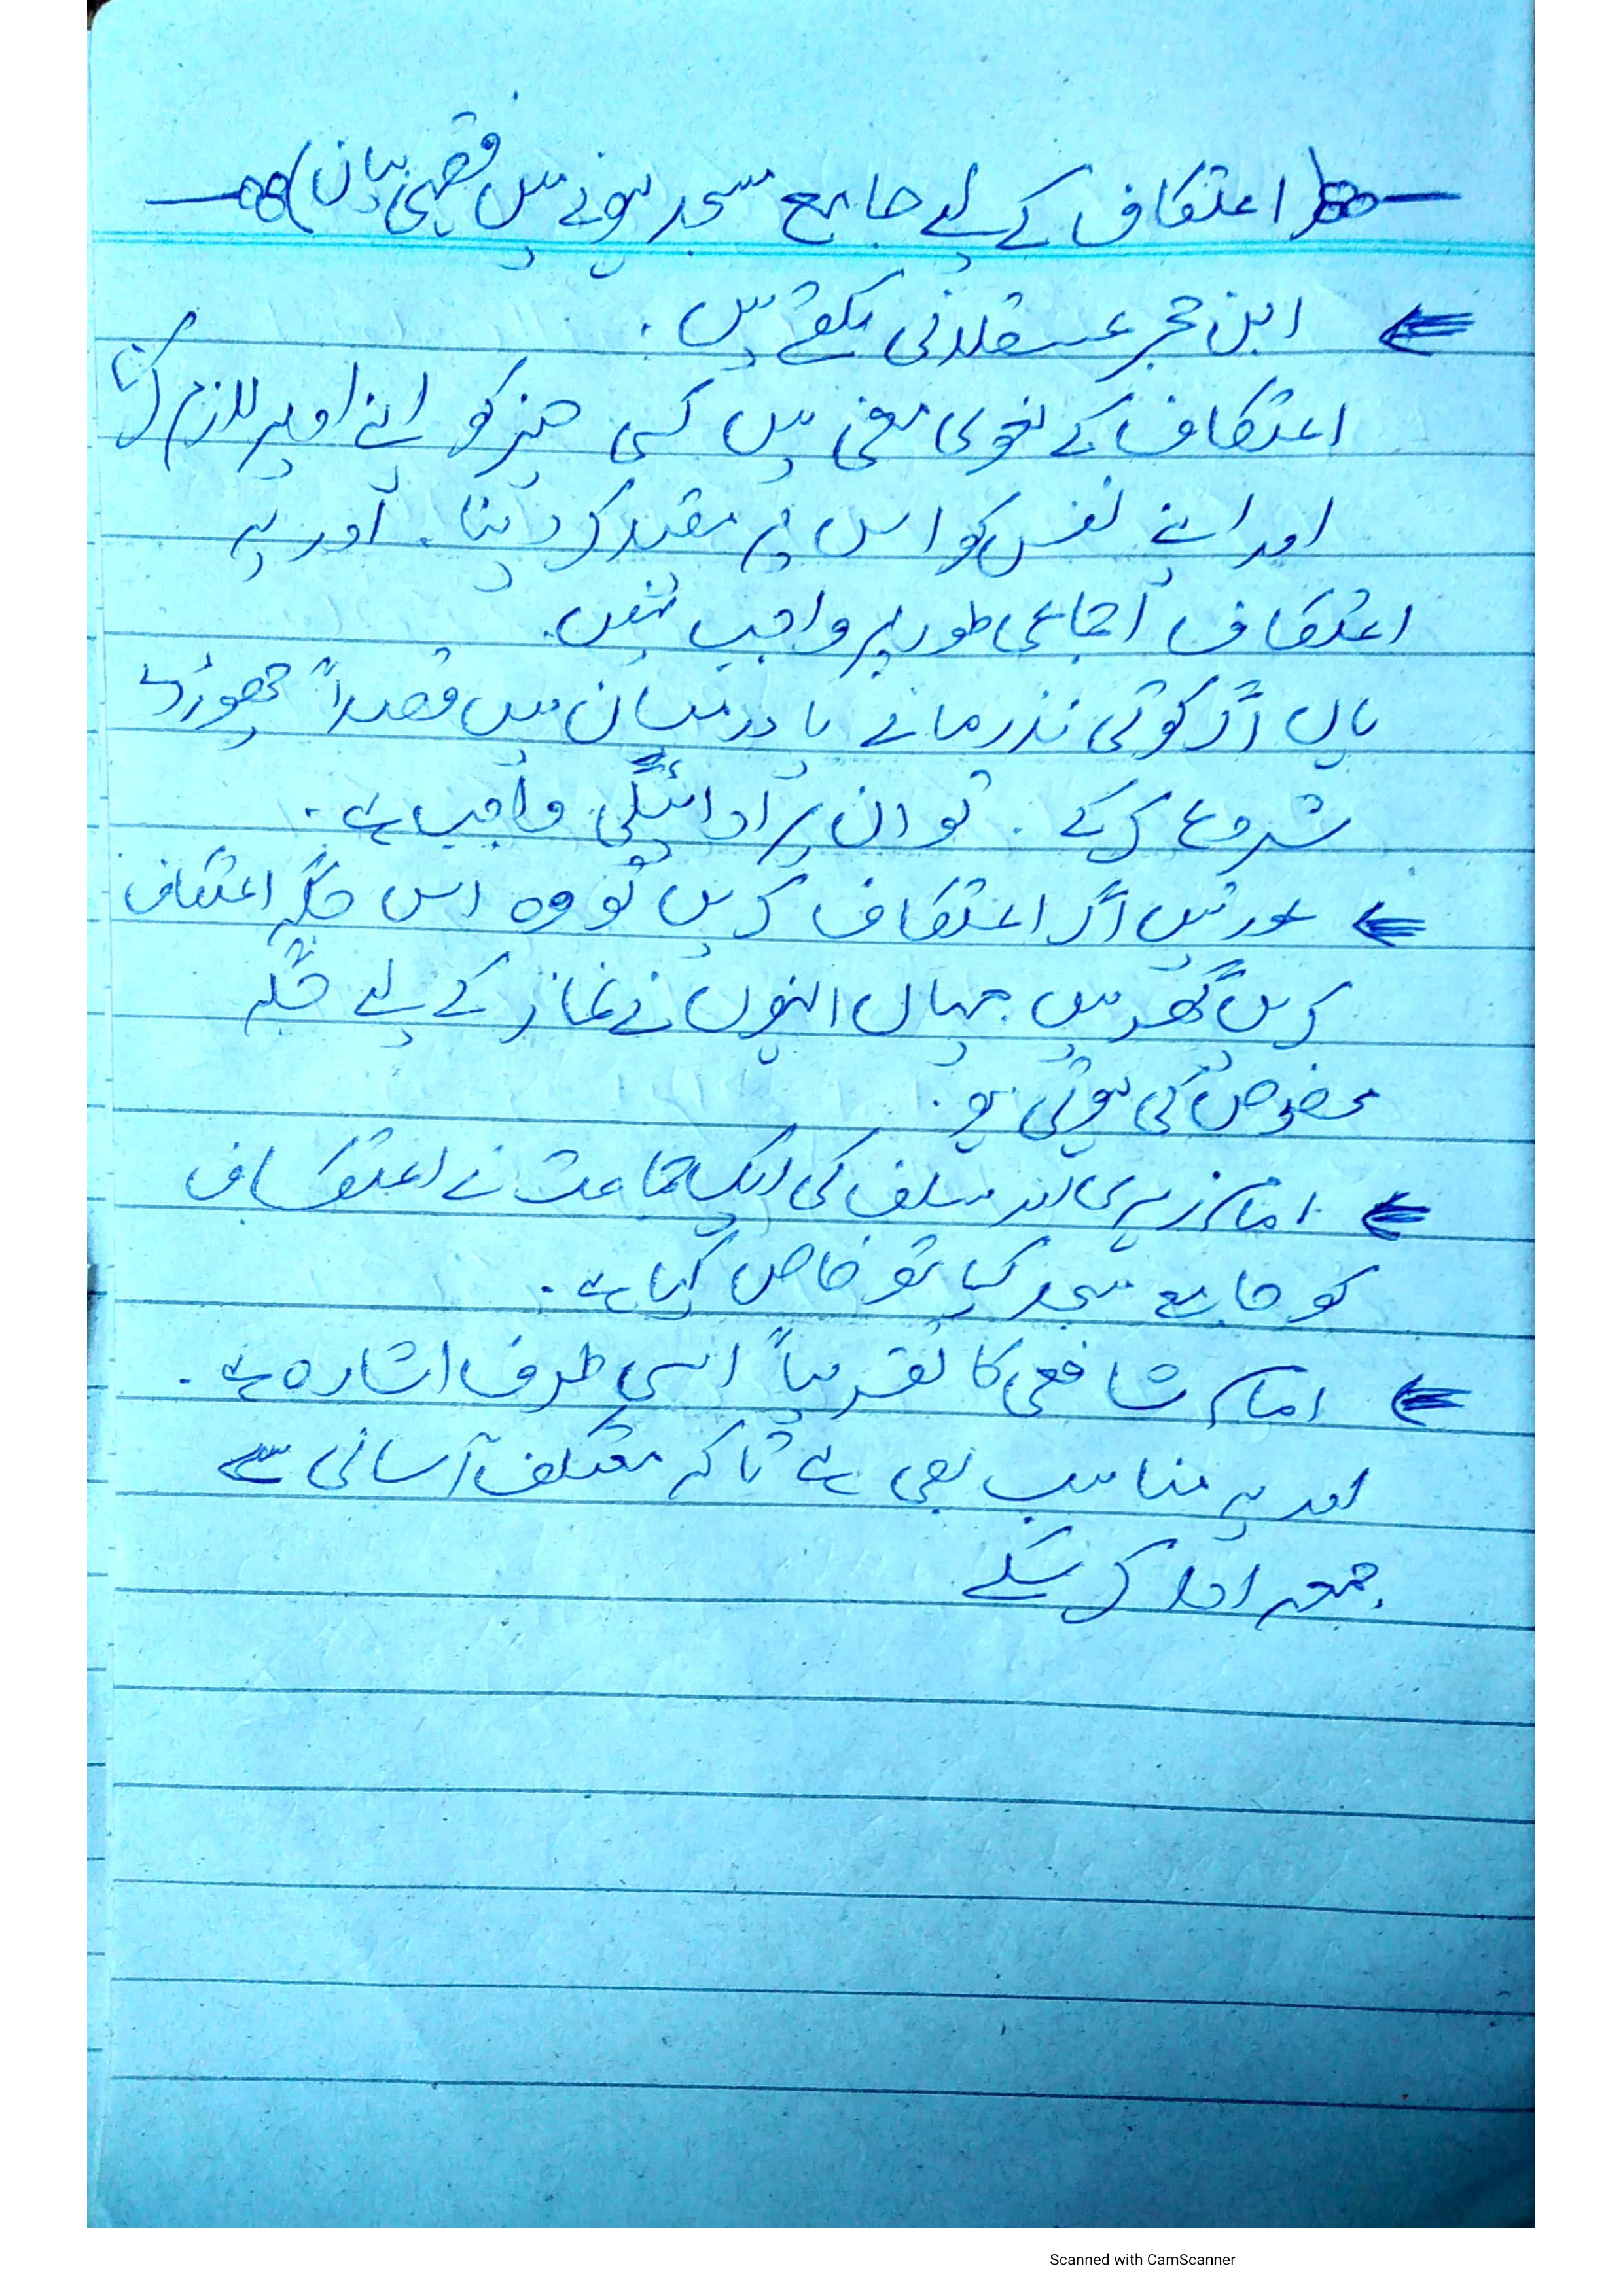 (اعتکاف کے لیے جامع مسجد ہونے میں فقہی بیان)
ابن حجر عسقلانی لکھتے ہیں۔
اعتکاف کے لغوی معنی ہیں کسی چیز کو اپنے اوپر لازم کرنا
اور اپنے نفس کو اس پر مقید کر دینا۔ اور یہ
اعتکاف اجماعی طور پر واجب نہیں۔
ہاں اگر کوئی نذر مانے یا درمیان میں قصداً چھوڑ دے
شروع کرکے۔ تو ان پر ادائیگی واجب ہے۔
عورتیں اگر اعتکاف کریں تو وہ اس جگہ اعتکاف
کریں گھر میں جہاں انہوں نے نماز کے لیے جگہ
مخصوص کی ہوئی ہو۔
امام زہری اور سلف کی ایک جماعت نے اعتکاف
کو جامع مسجد کیا تھ خاص کیا ہے۔
امام شافعی کا تقریباً اسی طرف اشارہ ہے۔
اور یہ مناسب بھی ہے تاکہ معتکف آسانی سے
جمعہ ادا کر سکے
Scanned with CamScanner